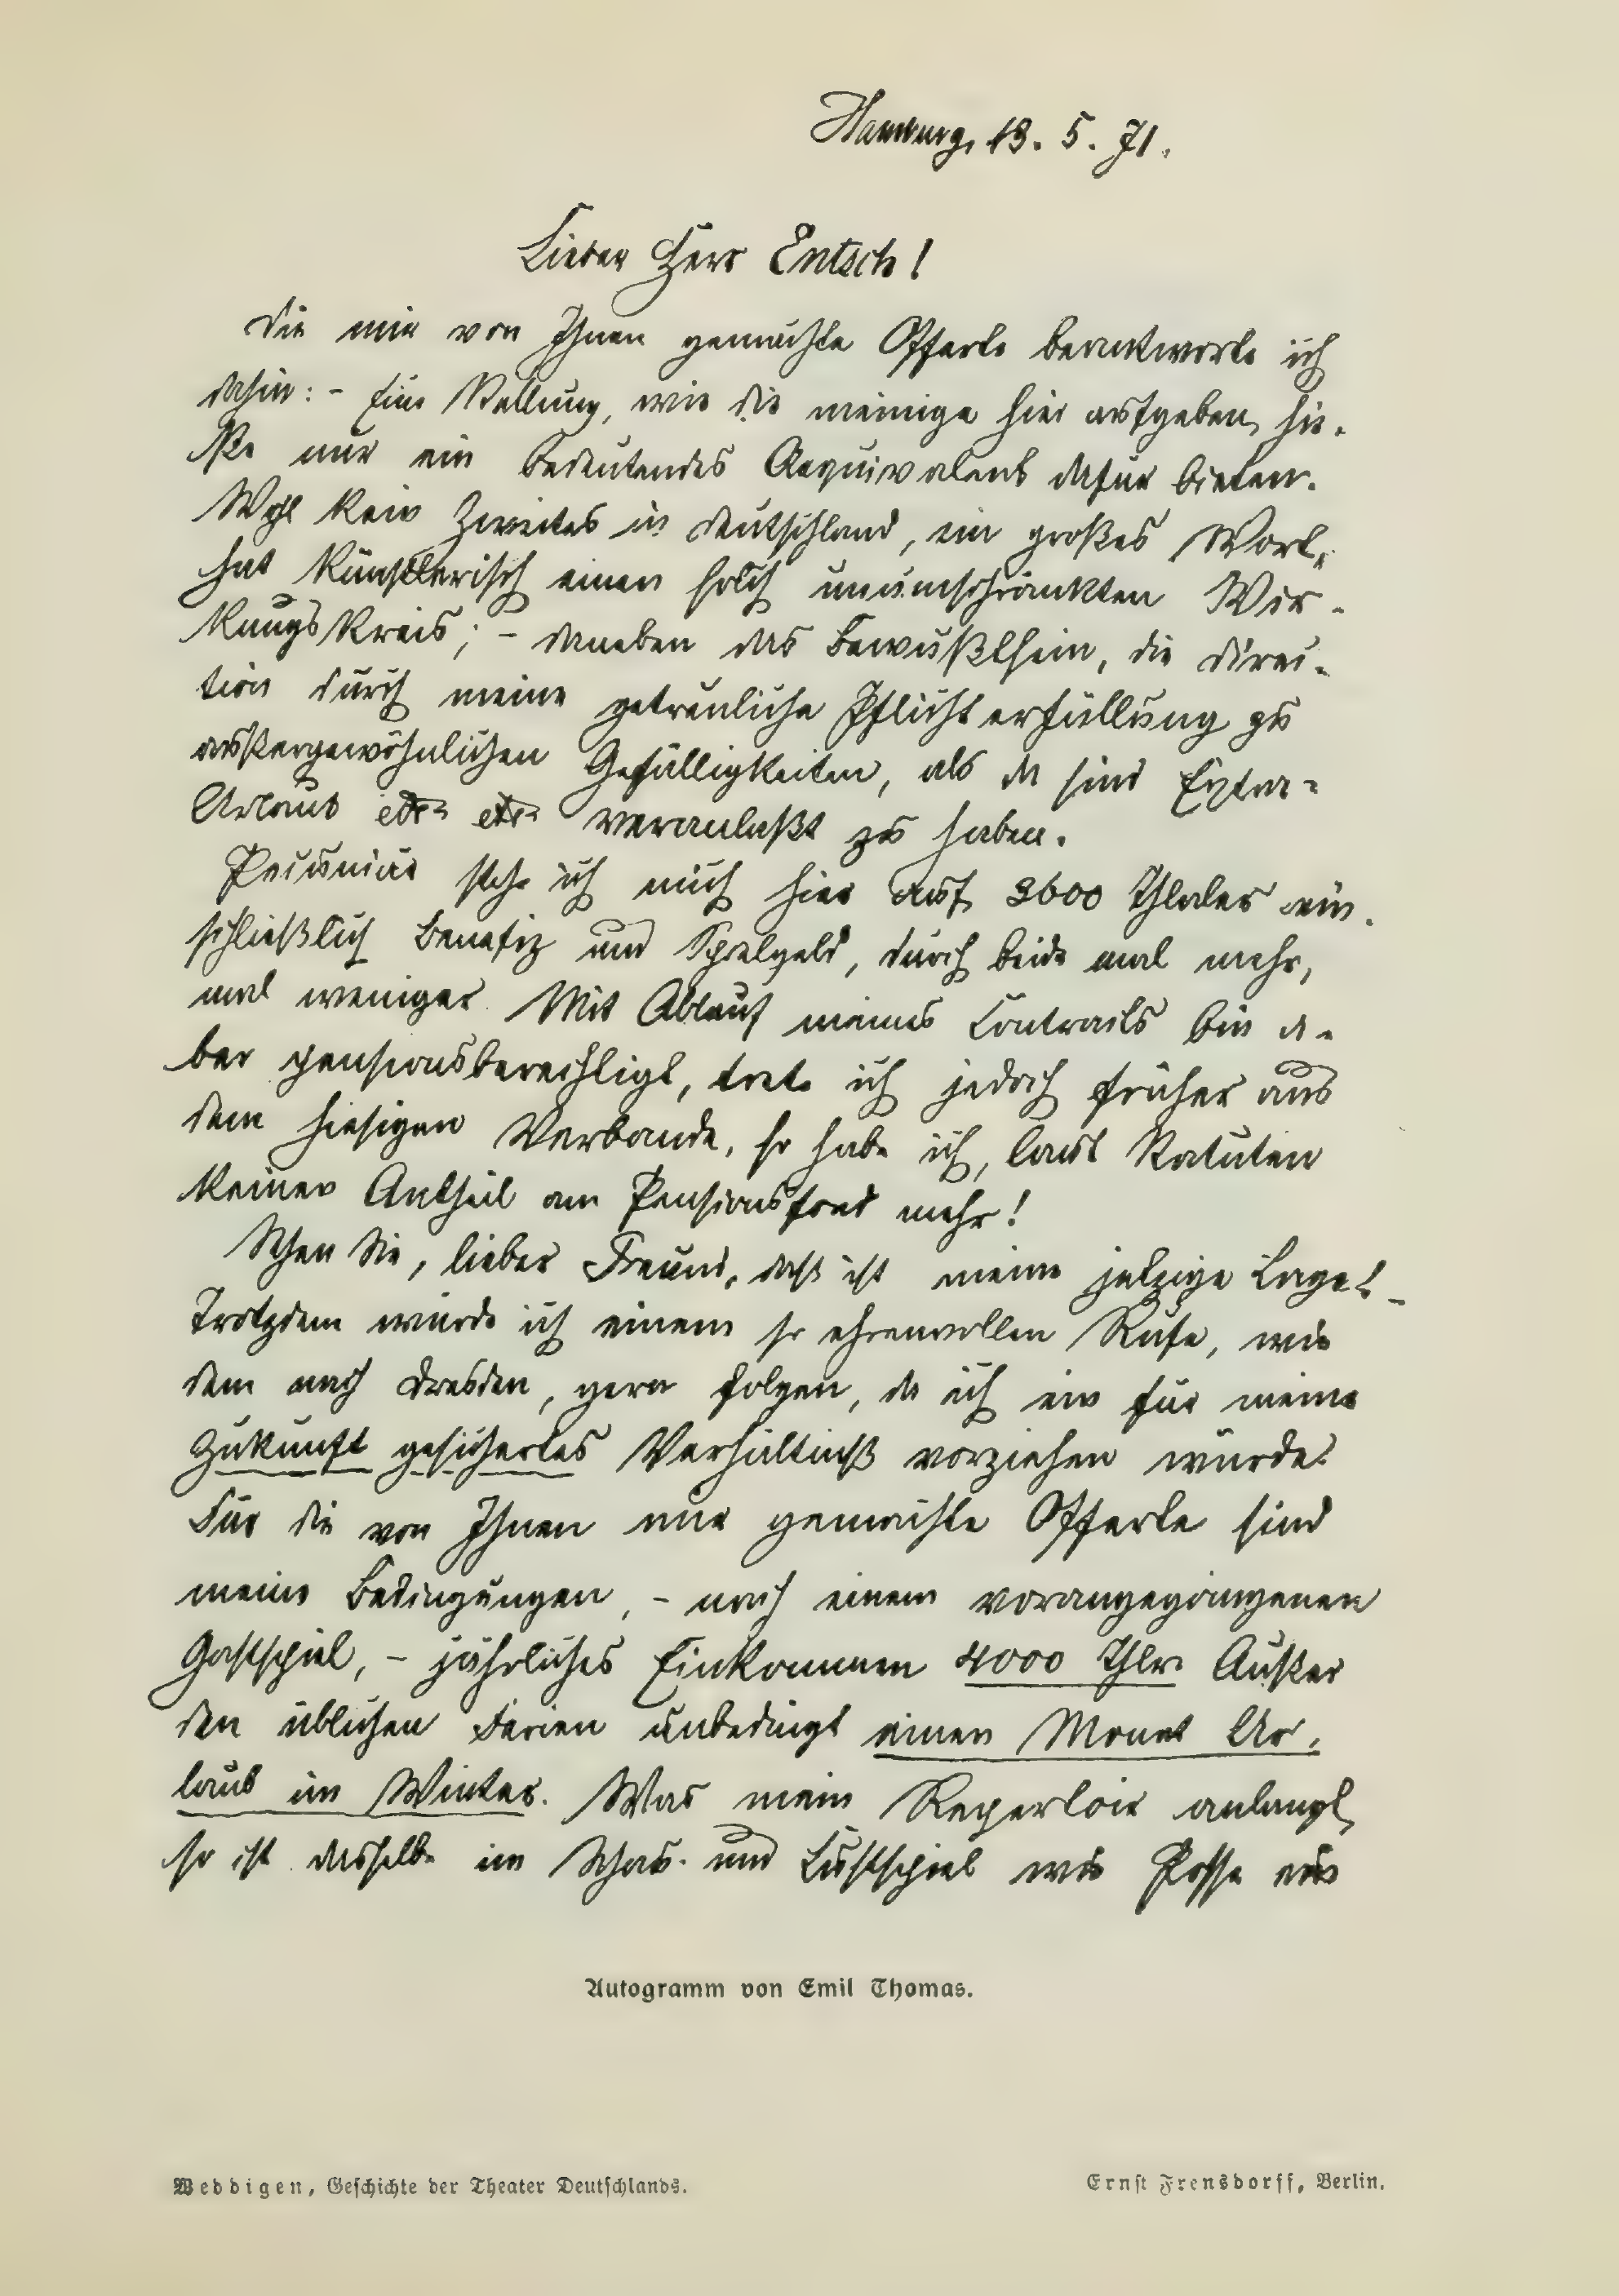 Hamburg, 13. 5. 71.
Lieber Herr Entsch!
Die mir von Ihnen gemachte Offerte beantworte ich
dahin: - Eine Stellung, wie die meinige hier aufgeben, hie-
ße nur ein bedeutendes Aequivalent dafür bieten.
Wohl kein Zweites in Deutschland, ein großes Wort,
hat künstlerisch einen solch unumschränkten Wir-
kungskreis; - daneben das Bewußtsein, die Direc-
tion durch meine getreuliche Pflichterfüllung zu
außergewöhnlichen Gefälligkeiten, als da sind Extra-
Urlaub etc etc veranlaßt zu haben.
Pecuniär stehe ich mich hier auf 3600 Thlaler ein-
schließlich Benefiz und Spielgeld, durch beide mal mehr,
mal weniger. Mit Ablauf meines Contracts bin a-
ber pensionsberechtigt, trete ich jedoch früher aus
dem hiesigen Verbande, so habe ich, laut Statuten
keinen Antheil am Pensionsfond mehr!
Sehen Sie, lieber Freund, daß ist meine jetzige Lage! -
Trotzdem würde ich einem so ehrenvollen Rufe, wie
dem nach Dresden, gern folgen, da ich ein für meine
Zukunft gesichertes Verhältniß vorziehen würde!
Für die von Ihnen mir gemachte Offerte sind
meine Bedingungen, - nach einem vorangegangenen
Gastspiel, - jährliches Einkommen 4000 Thlr. Außer
den üblichen Ferien unbedingt einen Monat Ur-
laub im Winter. Was mein Repertoir anlangt,
so ist dasselbe im Schau- und Lustspiel wie Posse ein
Autogramm von Emil Thomas.
Weddigen, Geschichte der Theater Deutschlands.
Ernst Frensdorff, Berlin.